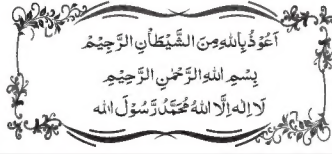 اَعُوْذُ بِاللهِ مِنَ الشَّيْطٰنِ الرَّجِيْمِ
بِسْمِ اللهِ الرَّحْمٰنِ الرَّحِيْمِ
لَا اِلٰهَ اِلَّا اللهُ مُحَمَّدٌ رَّسُوْلُ اللهِ